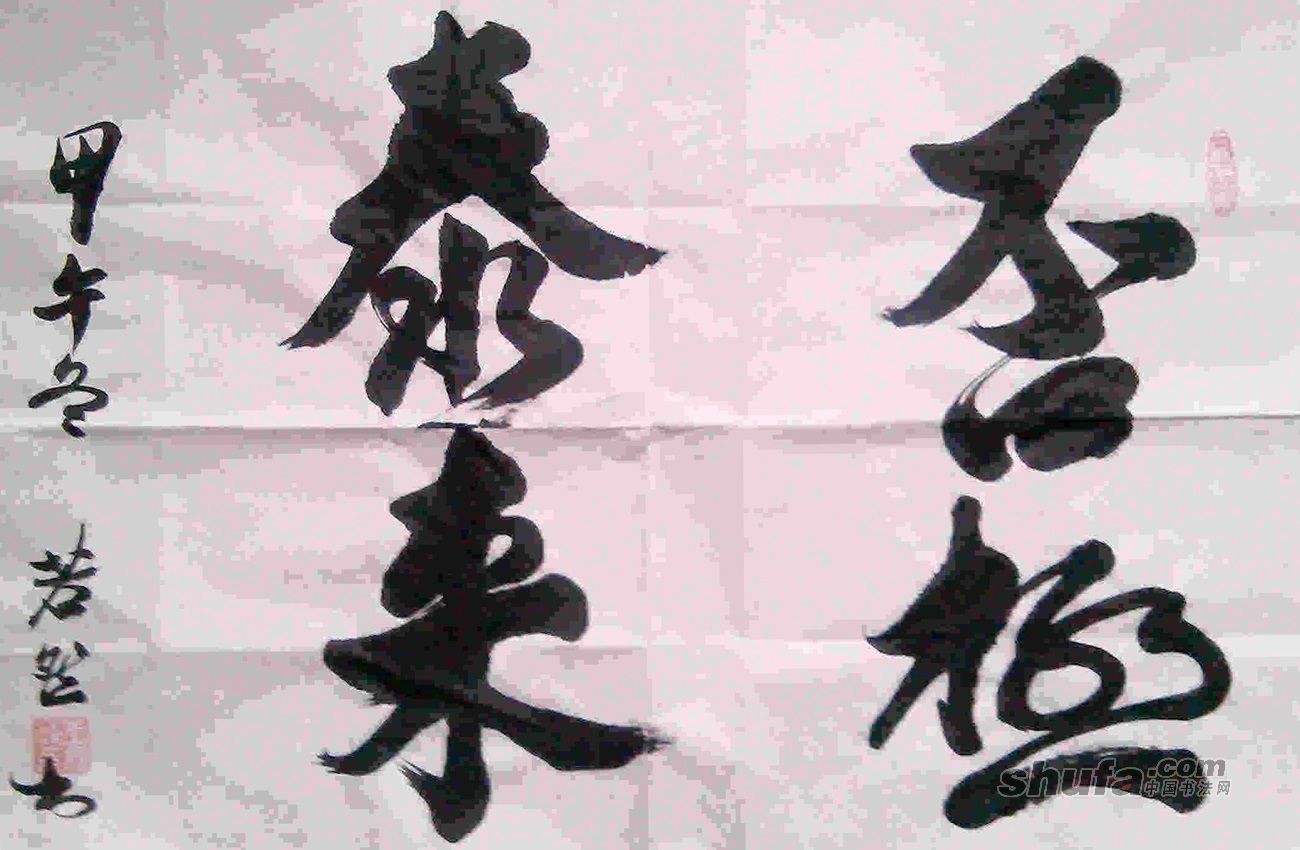 否極
泰来
甲午冬 若然书
shufa.com
中国书法网